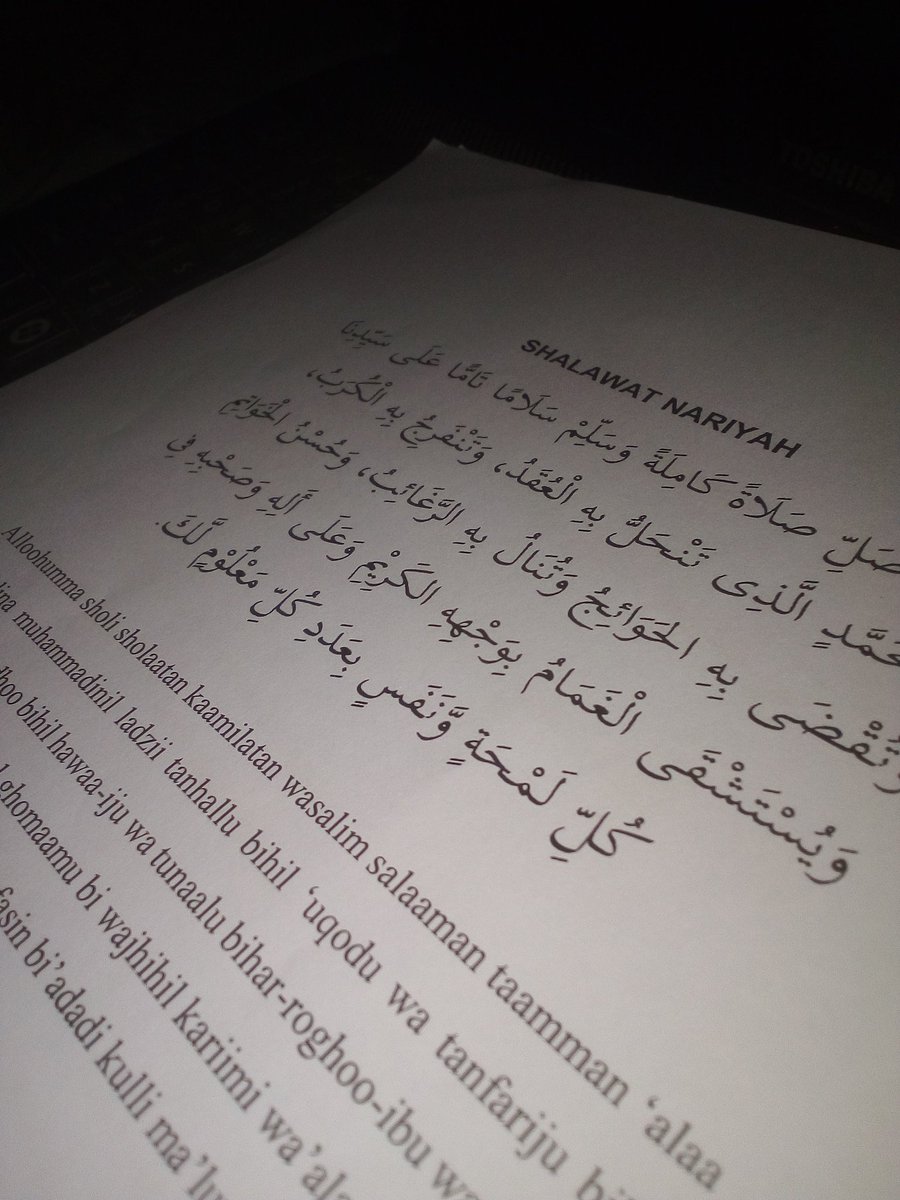 TOSHIBA
SHALAWAT NARIYAH
صَلِّ صَلَاةً كَامِلَةً وَسَلِّمْ سَلَامًا تَامًّا عَلَى سَيِّدِنَا
الَّذِى تَنْحَلُّ بِهِ الْعُقَدُ، وَتَنْفَرِجُ بِهِ الْكُرَبُ،
وَتُقْضَى بِهِ الحَوَائِجُ وَتُنَالُ بِهِ الرَّغَائِبُ، وَحُسْنُ الْخَوَاتِمِ
وَيُسْتَشْقَى الْغَمَامُ بِوَجْهِهِ الكَرِيْمِ وَعَلَى أَلِهِ وَصَحْبِهِ فِي
كُلِّ لَمْحَةٍ وَّنَفَسٍ بِعَدَدِ كُلِّ مَعْلُوْمٍ لَّكَ.
Alloohumma sholi sholaatan kaamilatan wasalim salaaman taamman ‘alaa
muhammadinil ladzii tanhallu bihil ‘uqodu wa tanfariju
bihil hawaa-iju wa tunaalu bihar-roghoo-ibu
ghomaamu bi wajhihil kariimi
bi’adadi kulli